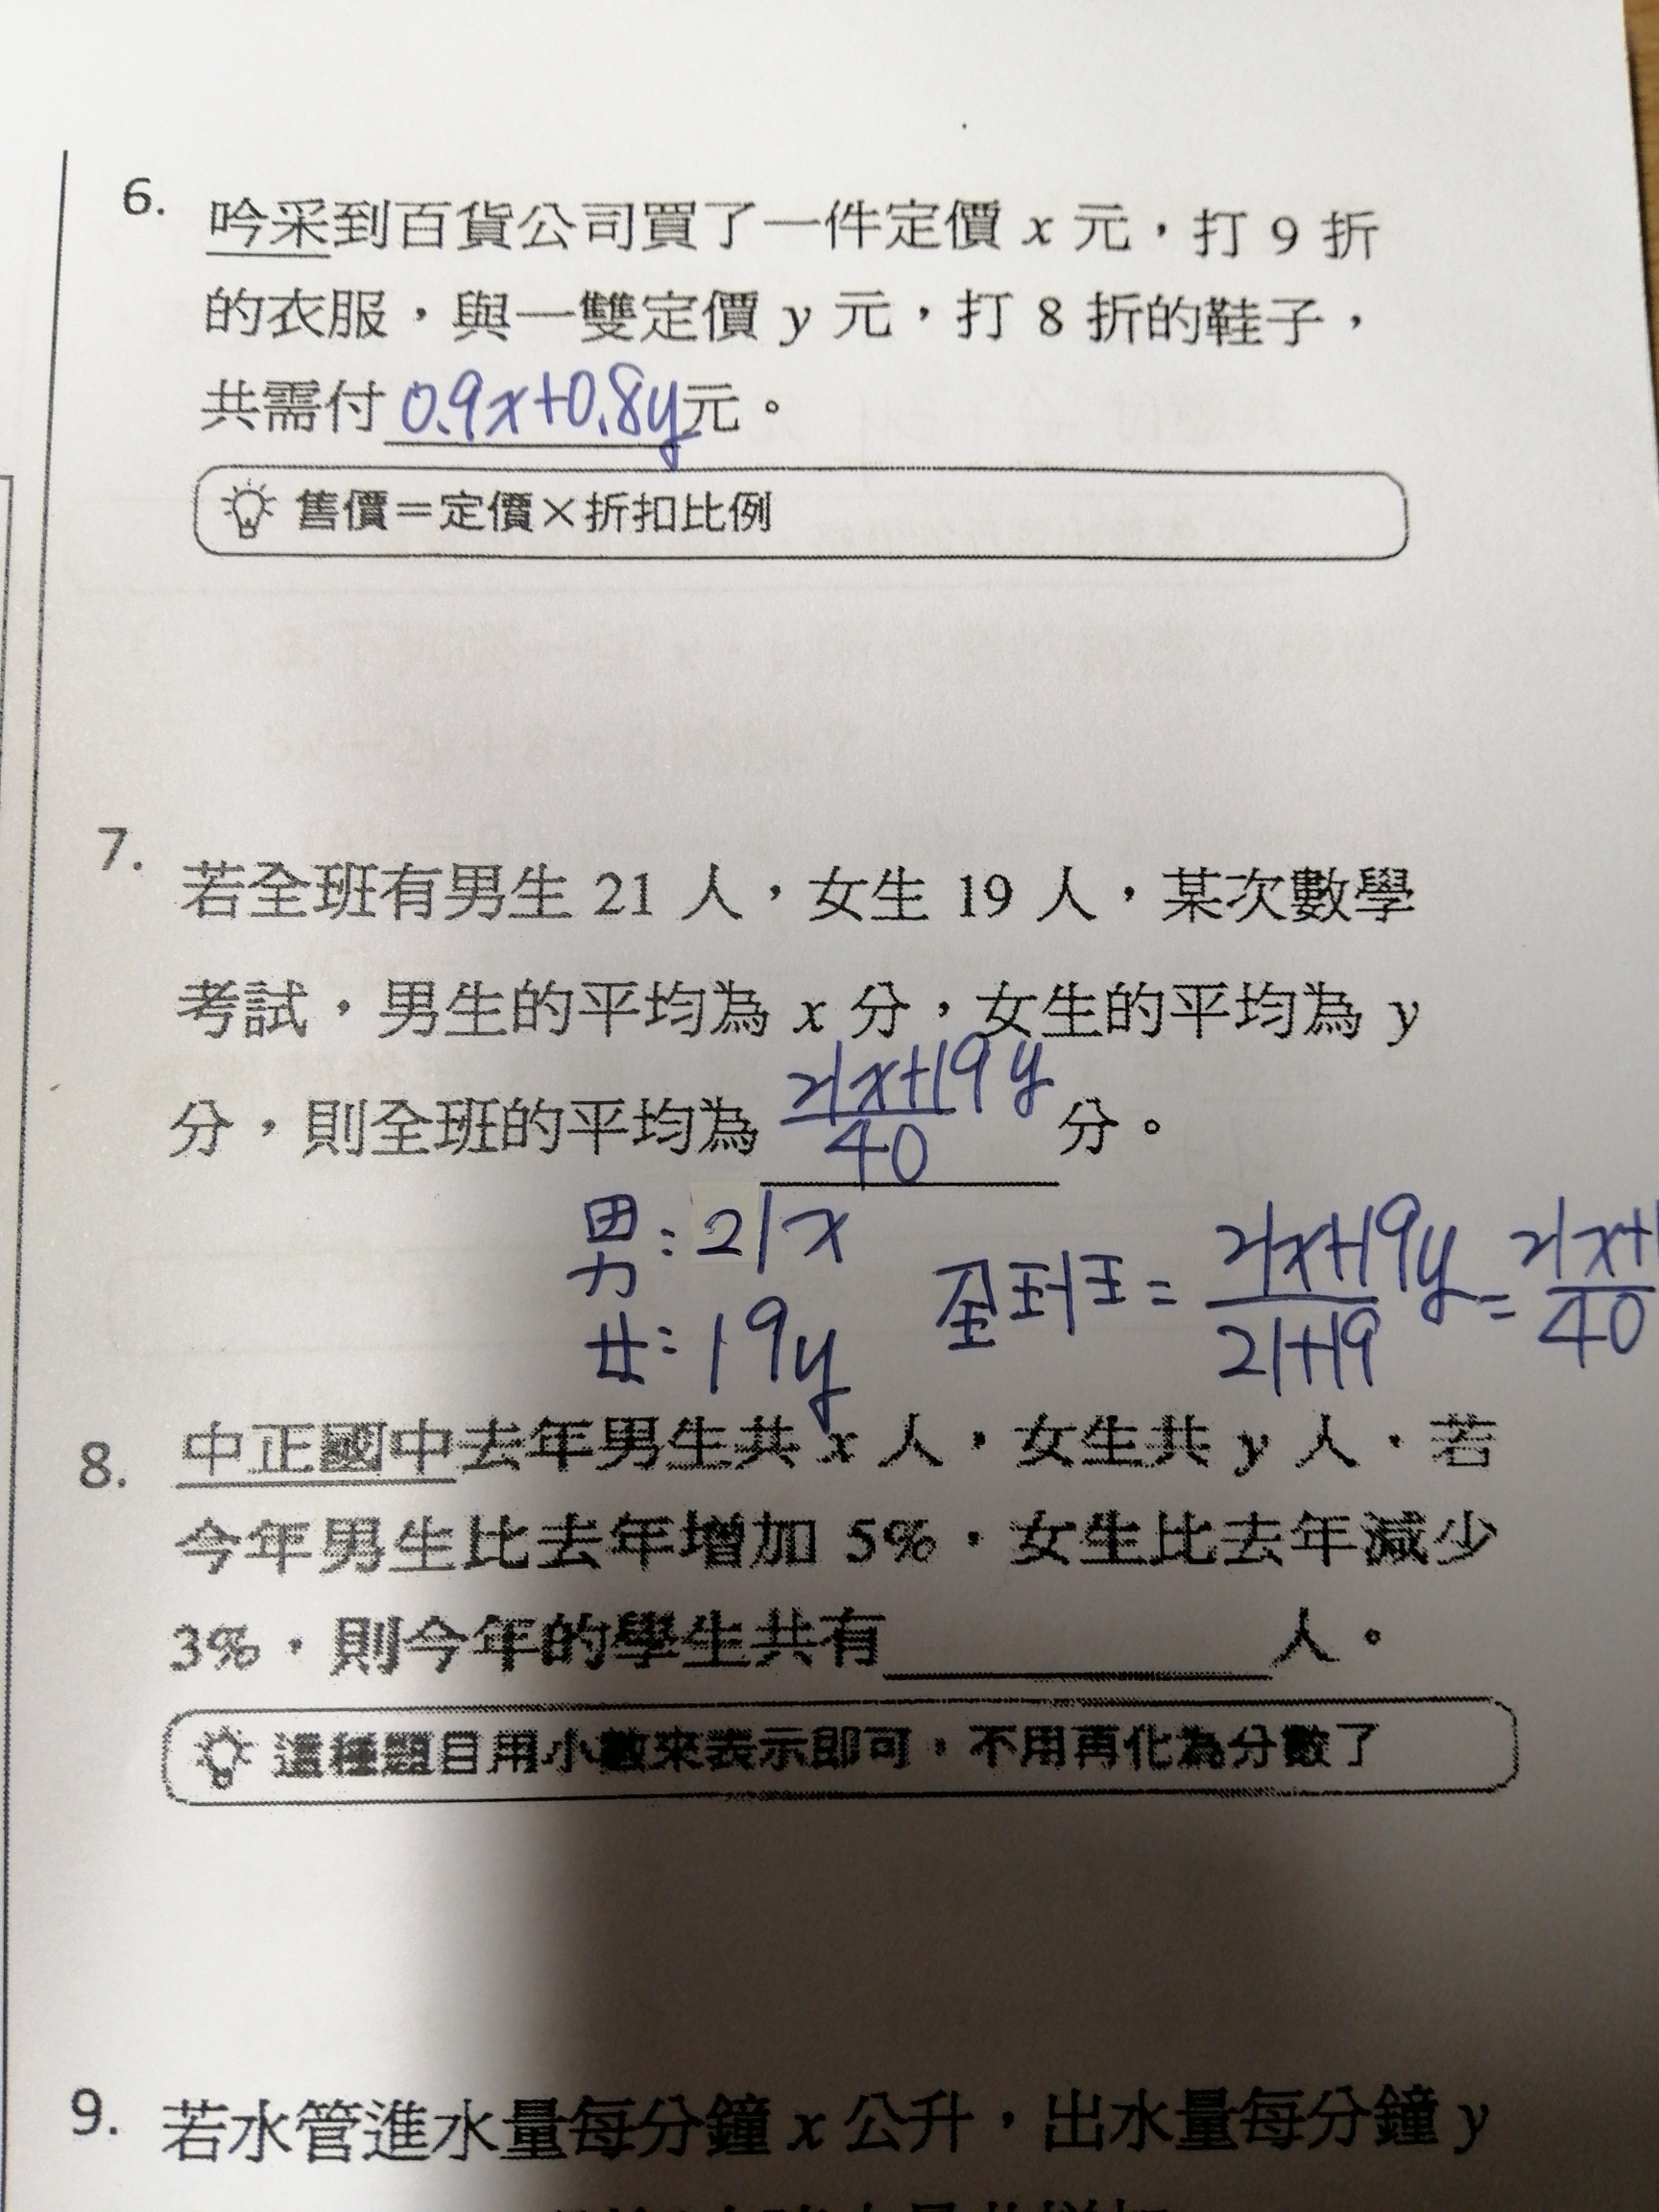 6. 吟采到百貨公司買了一件定價 x 元，打 9 折
的衣服，與一雙定價 y 元，打 8 折的鞋子，
共需付 0.9x+0.8y 元。
售價＝定價×折扣比例
7. 若全班有男生 21 人，女生 19 人，某次數學
考試，男生的平均為 x 分，女生的平均為 y
分，則全班的平均為 (21x+19y)/40 分。
男：21x
女：19y
全班 = (21x+19y)/(21+19) = 21x+1/40
8. 中正國中去年男生共 x 人，女生共 y 人，若
今年男生比去年增加 5%，女生比去年減少
3%，則今年的學生共有 人。
這種題目用小數來表示即可，不用再化為分數了
9. 若水管進水量每分鐘 x 公升，出水量每分鐘 y